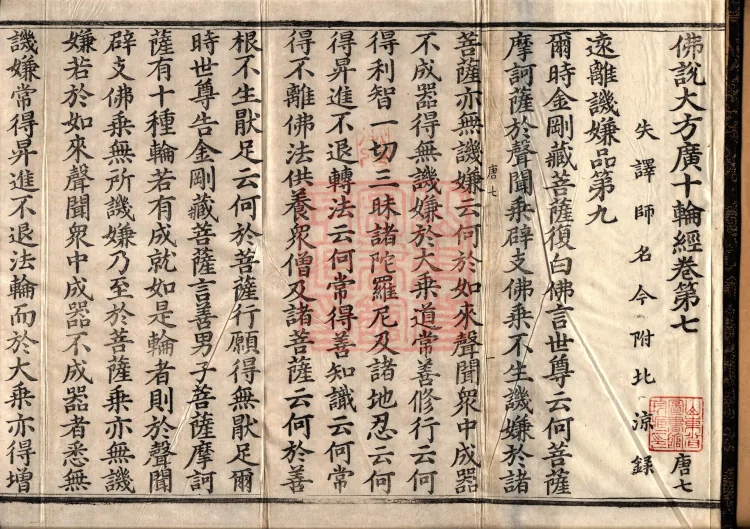 佛說大方廣十輪經卷第七
唐七
失譯師名今附北涼錄
遠離譏嫌品第九
爾時金剛藏菩薩復白佛言世尊云何菩薩
摩訶薩於聲聞乘辟支佛乘不生譏嫌於諸
唐七
菩薩亦無譏嫌云何於如來聲聞眾中成器
不成器得無譏嫌於大乘道常善修行云何
得利智一切三昧諸陀羅尼及諸地忍云何
得昇進不退轉法云何常得善知識云何常
得不離佛法供養眾僧及諸菩薩云何於善
根不生猒足云何於菩薩行願得無猒足爾
時世尊告金剛藏菩薩言善男子菩薩摩訶
薩有十種輪若有成就如是輪者則於聲聞
辟支佛乘無所譏嫌乃至於菩薩乘亦無譏
嫌若於如來聲聞眾中成器不成器者悉無
譏嫌常得昇進不退法輪而於大乘亦得增